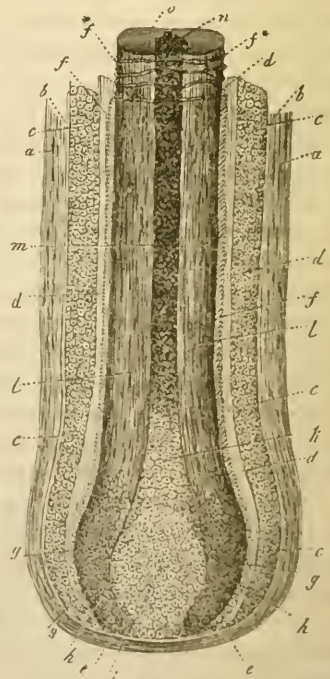 o
n
*f
f*
d
f
b b
c c
a a
m
d d
f
l
l
c
c k
d
g c
g
g h
h
e e